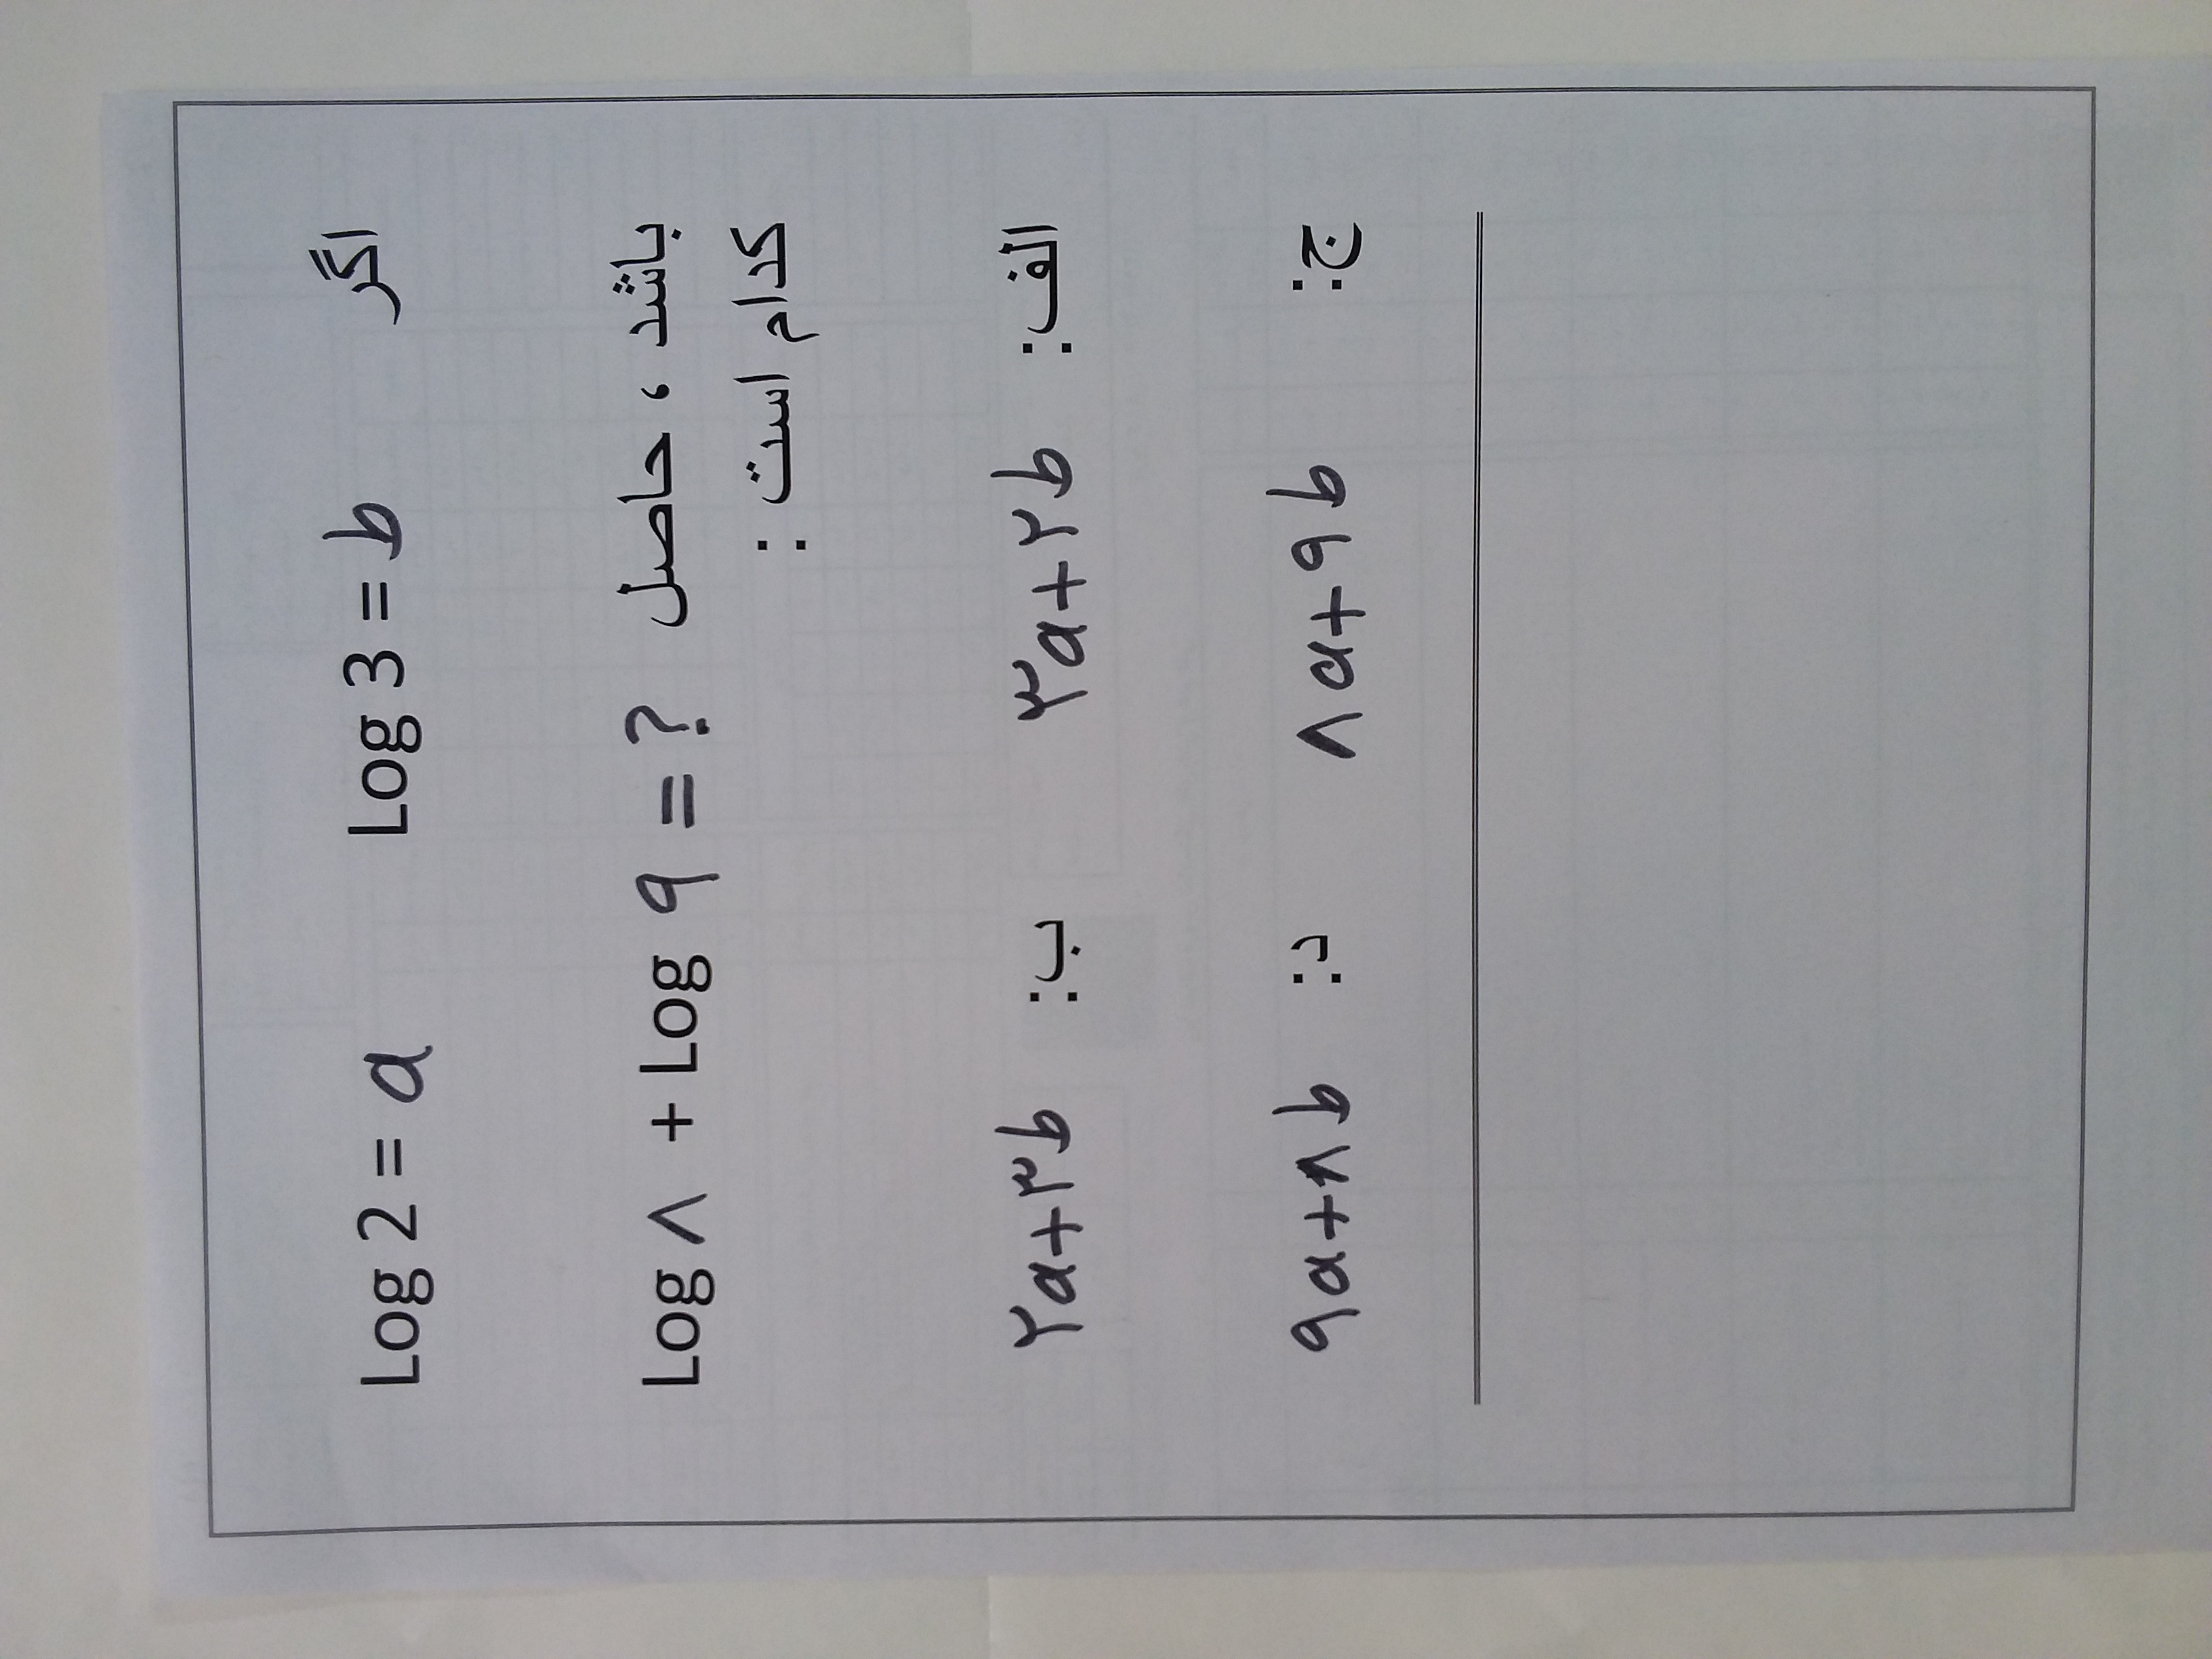 اگر Log 2 = a Log 3 = b
باشد ، حاصل Log ۸ + Log ۹ = ?
کدام است :
الف: ۳a+۲b ب: ۲a+۳b
ج: ۸a+۹b د: ۹a+۸b